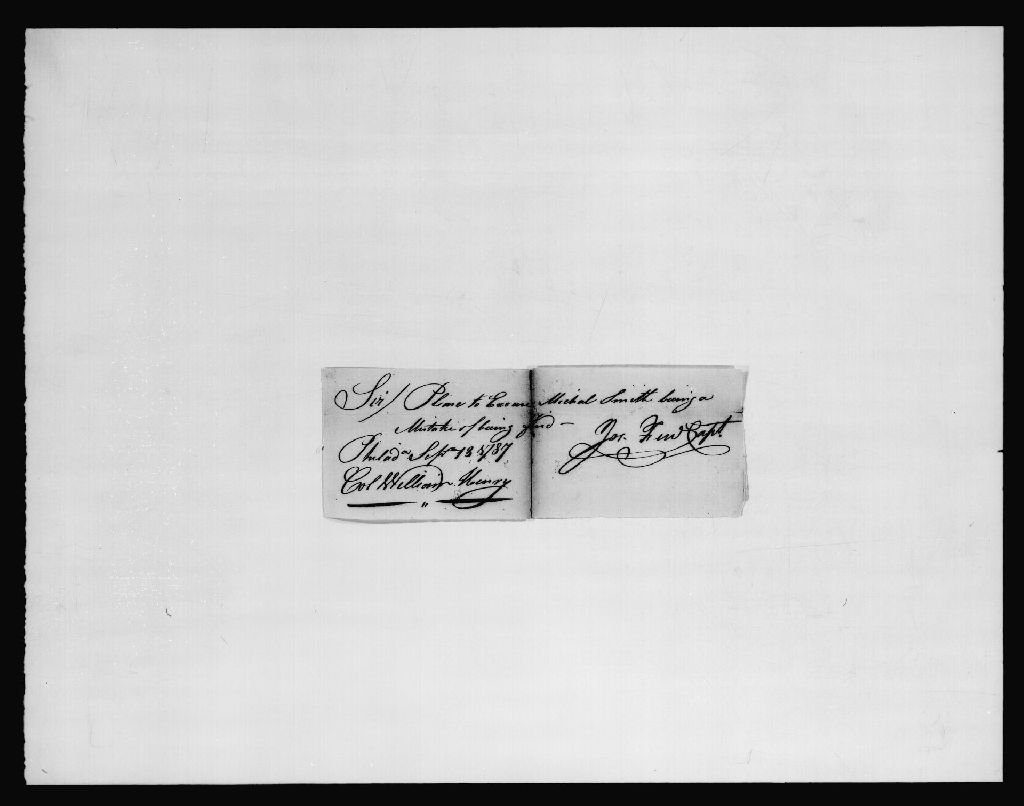 Sir/ Please to Excuse Michal Smith being a
Mistake of being fined —
Philada Septr 13 1787
Jos. Few Capt
Col William Henry